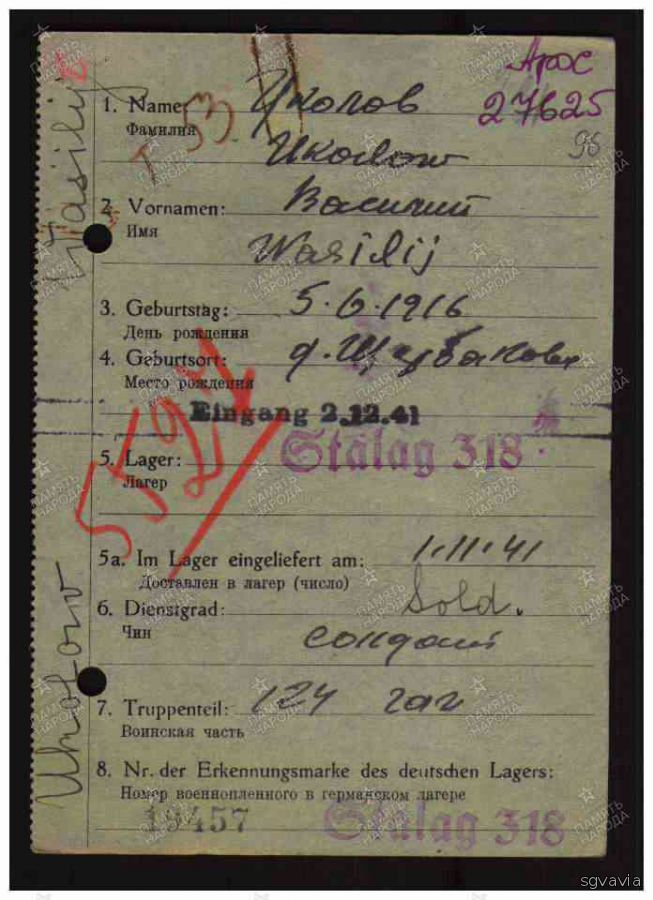 Арос
27625
98
т 53
1. Name: Уколов
Фамилия
Ukolow
2. Vornamen: Василий
Имя
Wasilij
3. Geburtstag: 5.6.1916
День рождения
4. Geburtsort: д. Щербаковка
Место рождения
Eingang 2.12.41
5. Lager: Stalag 318
Лагер
5a. Im Lager eingeliefert am: 1.11.41
Доставлен в лагер (число)
6. Dienstgrad: Sold.
Чин солдат
7. Truppenteil: 124 гап
Воинская часть
8. Nr. der Erkennungsmarke des deutschen Lagers:
Номер военнопленного в германском лагере
19457 Stalag 318
Wasilij
Ukolow
ПАМЯТЬ НАРОДА
sgvavia